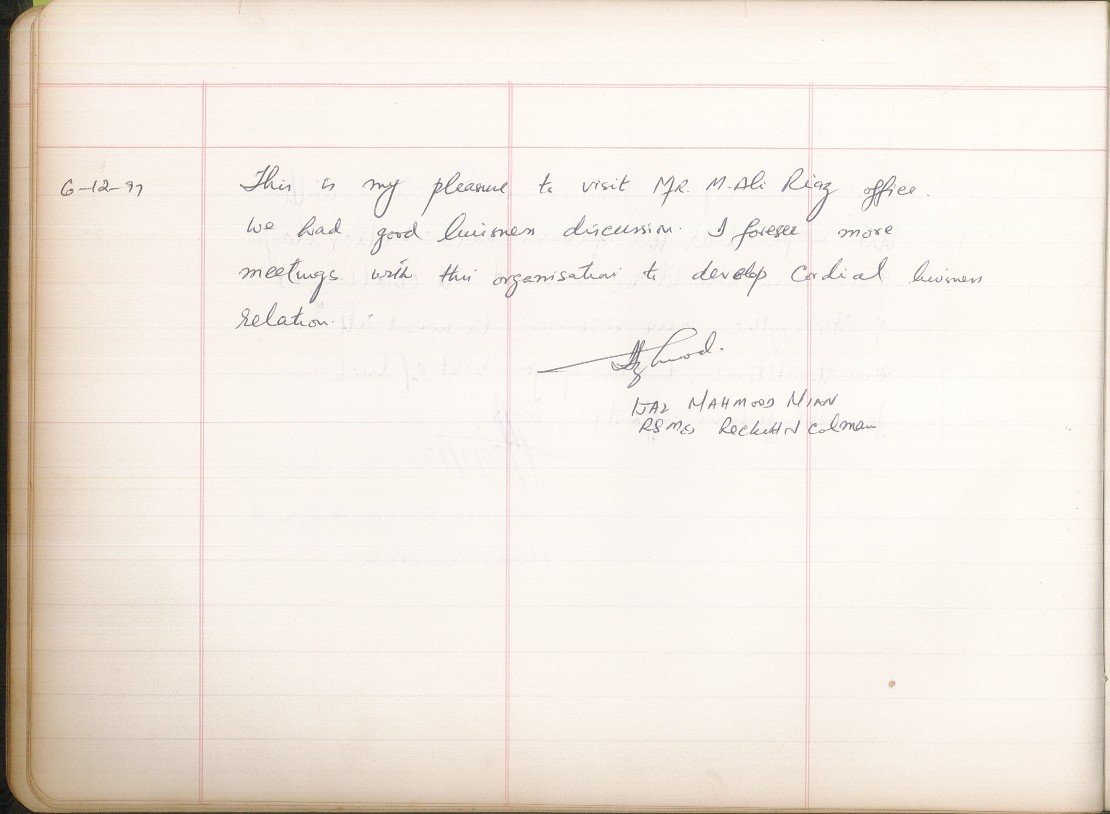 6-12-97
This is my pleasure to visit MR. M. Ali Riaz office.
We had good business discussion. I foresee more
meetings with this organisation to develop Cordial business
relation.
IJAZ MAHMOOD MIAN
Reckitt & Colman